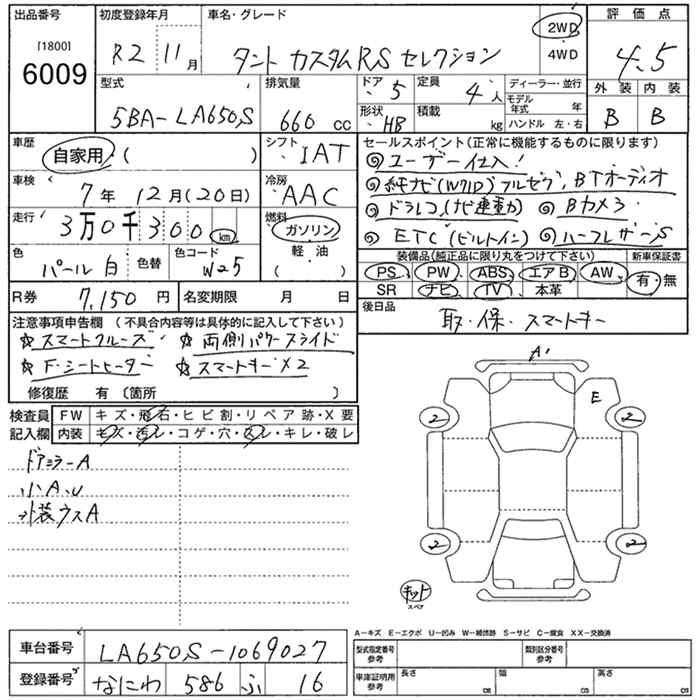 出品番号 初度登録年月 車名・グレード 評価点
[1800] 6009 R2 11月 タント カスタムRS セレクション 2WD 4WD 4.5
型式 排気量 ドア 5 定員 4人 ディーラー・並行 外装 内装
5BA-LA650S 660 cc 形状 HB 積載 kg モデル年式 年 ハンドル 左・右 B B
車歴 自家用 ( ) シフト IAT セールスポイント(正常に機能するものに限ります)
◎ユーザー仕入!
車検 7年 12月(20日) 冷房 AAC ◎純ナビ(W71D)フルセグ、BTオーディオ
走行 3万0千300 km 燃料 ガソリン ◎ドラレコ(ナビ連動) ◎Bカメラ
軽油 ( ) ◎ETC(ビルトイン) ◎ハーフレザーS
色 パール白 色替 色コード W25 装備品(純正品に限り丸をつけて下さい) 新車保証書
PS PW ABS エアB AW 有・無
R券 7,150円 名変期限 月 日 SR ナビ TV 本革
注意事項申告欄 (不具合内容等は具体的に記入して下さい) 後日品
☆スマートクルーズ ☆両側パワースライド 取・保・スマートキー
☆F・シートヒーター ☆スマートキー×2
修復歴 有 〔箇所 〕
検査員 FW キズ・飛石・ヒビ割・リペア跡・X要
記入欄 内装 キズ・汚レ・コゲ・穴・スレ・キレ・破レ
A' E
ドアミラーA 2 2
小A、U
外装ウスA
2 2
キット スペア
A-キズ E-エクボ U-凹み W-補修跡 S-サビ C-腐食 XX-交換済
車台番号 LA650S-1069027 型式指定番号 参考 類別区分番号 参考
登録番号 なにわ 586 ふ 16 車庫証明用 参考 長さ cm 幅 cm 高さ cm